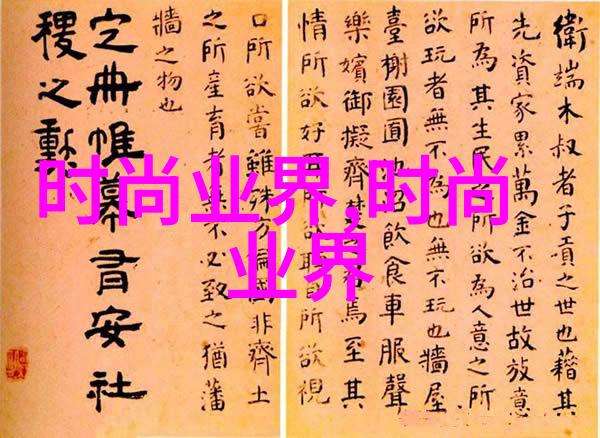 衛端木叔者子貢之世也藉其
先資家累萬金不治世故放意
所為其生民之所欲為人意之所
欲玩者無不為也無不玩也牆屋
臺榭園囿池沼飲食車服聲
樂嬪御擬齊楚之君焉至其
情所欲好耳所欲聽目所欲視
口所欲嘗雖殊方偏國非齊土
之所產育者無不必致之猶藩
牆之物也
定冊帷幕有安社
稷之勳
时尚业界,时尚
业界